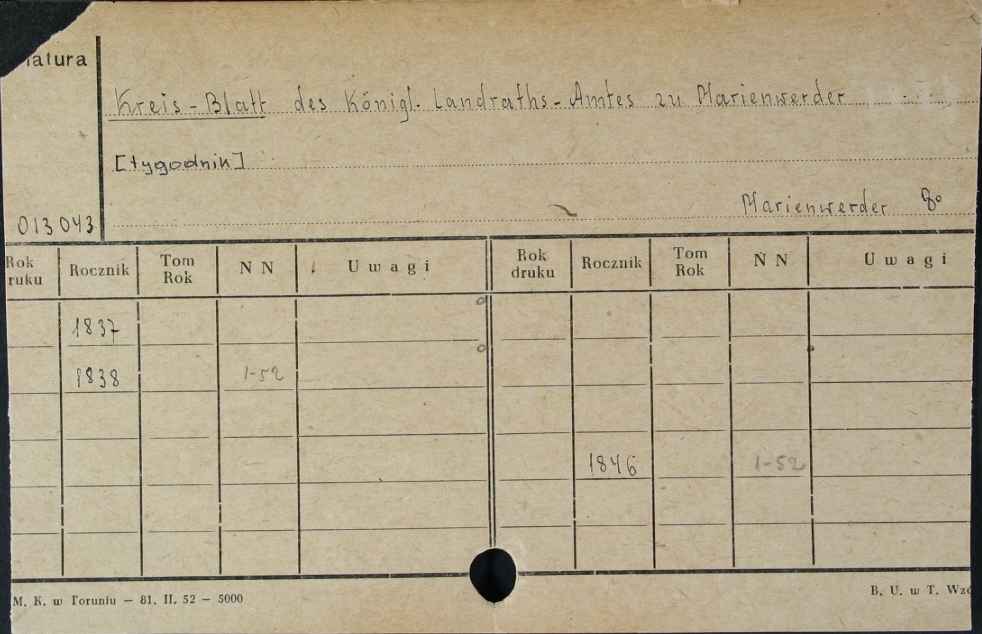 atura
Kreis-Blatt des Königl. Landraths-Amtes zu Marienwerder
[tygodnik]
Marienwerder 8°
013043
Rok ruku Rocznik Tom Rok N N U w a g i Rok druku Rocznik Tom Rok N N U w a g i
1837
1838 1-52
1846 1-52
M. K. w Toruniu — 81. II. 52 — 5000
B. U. w T. Wzó